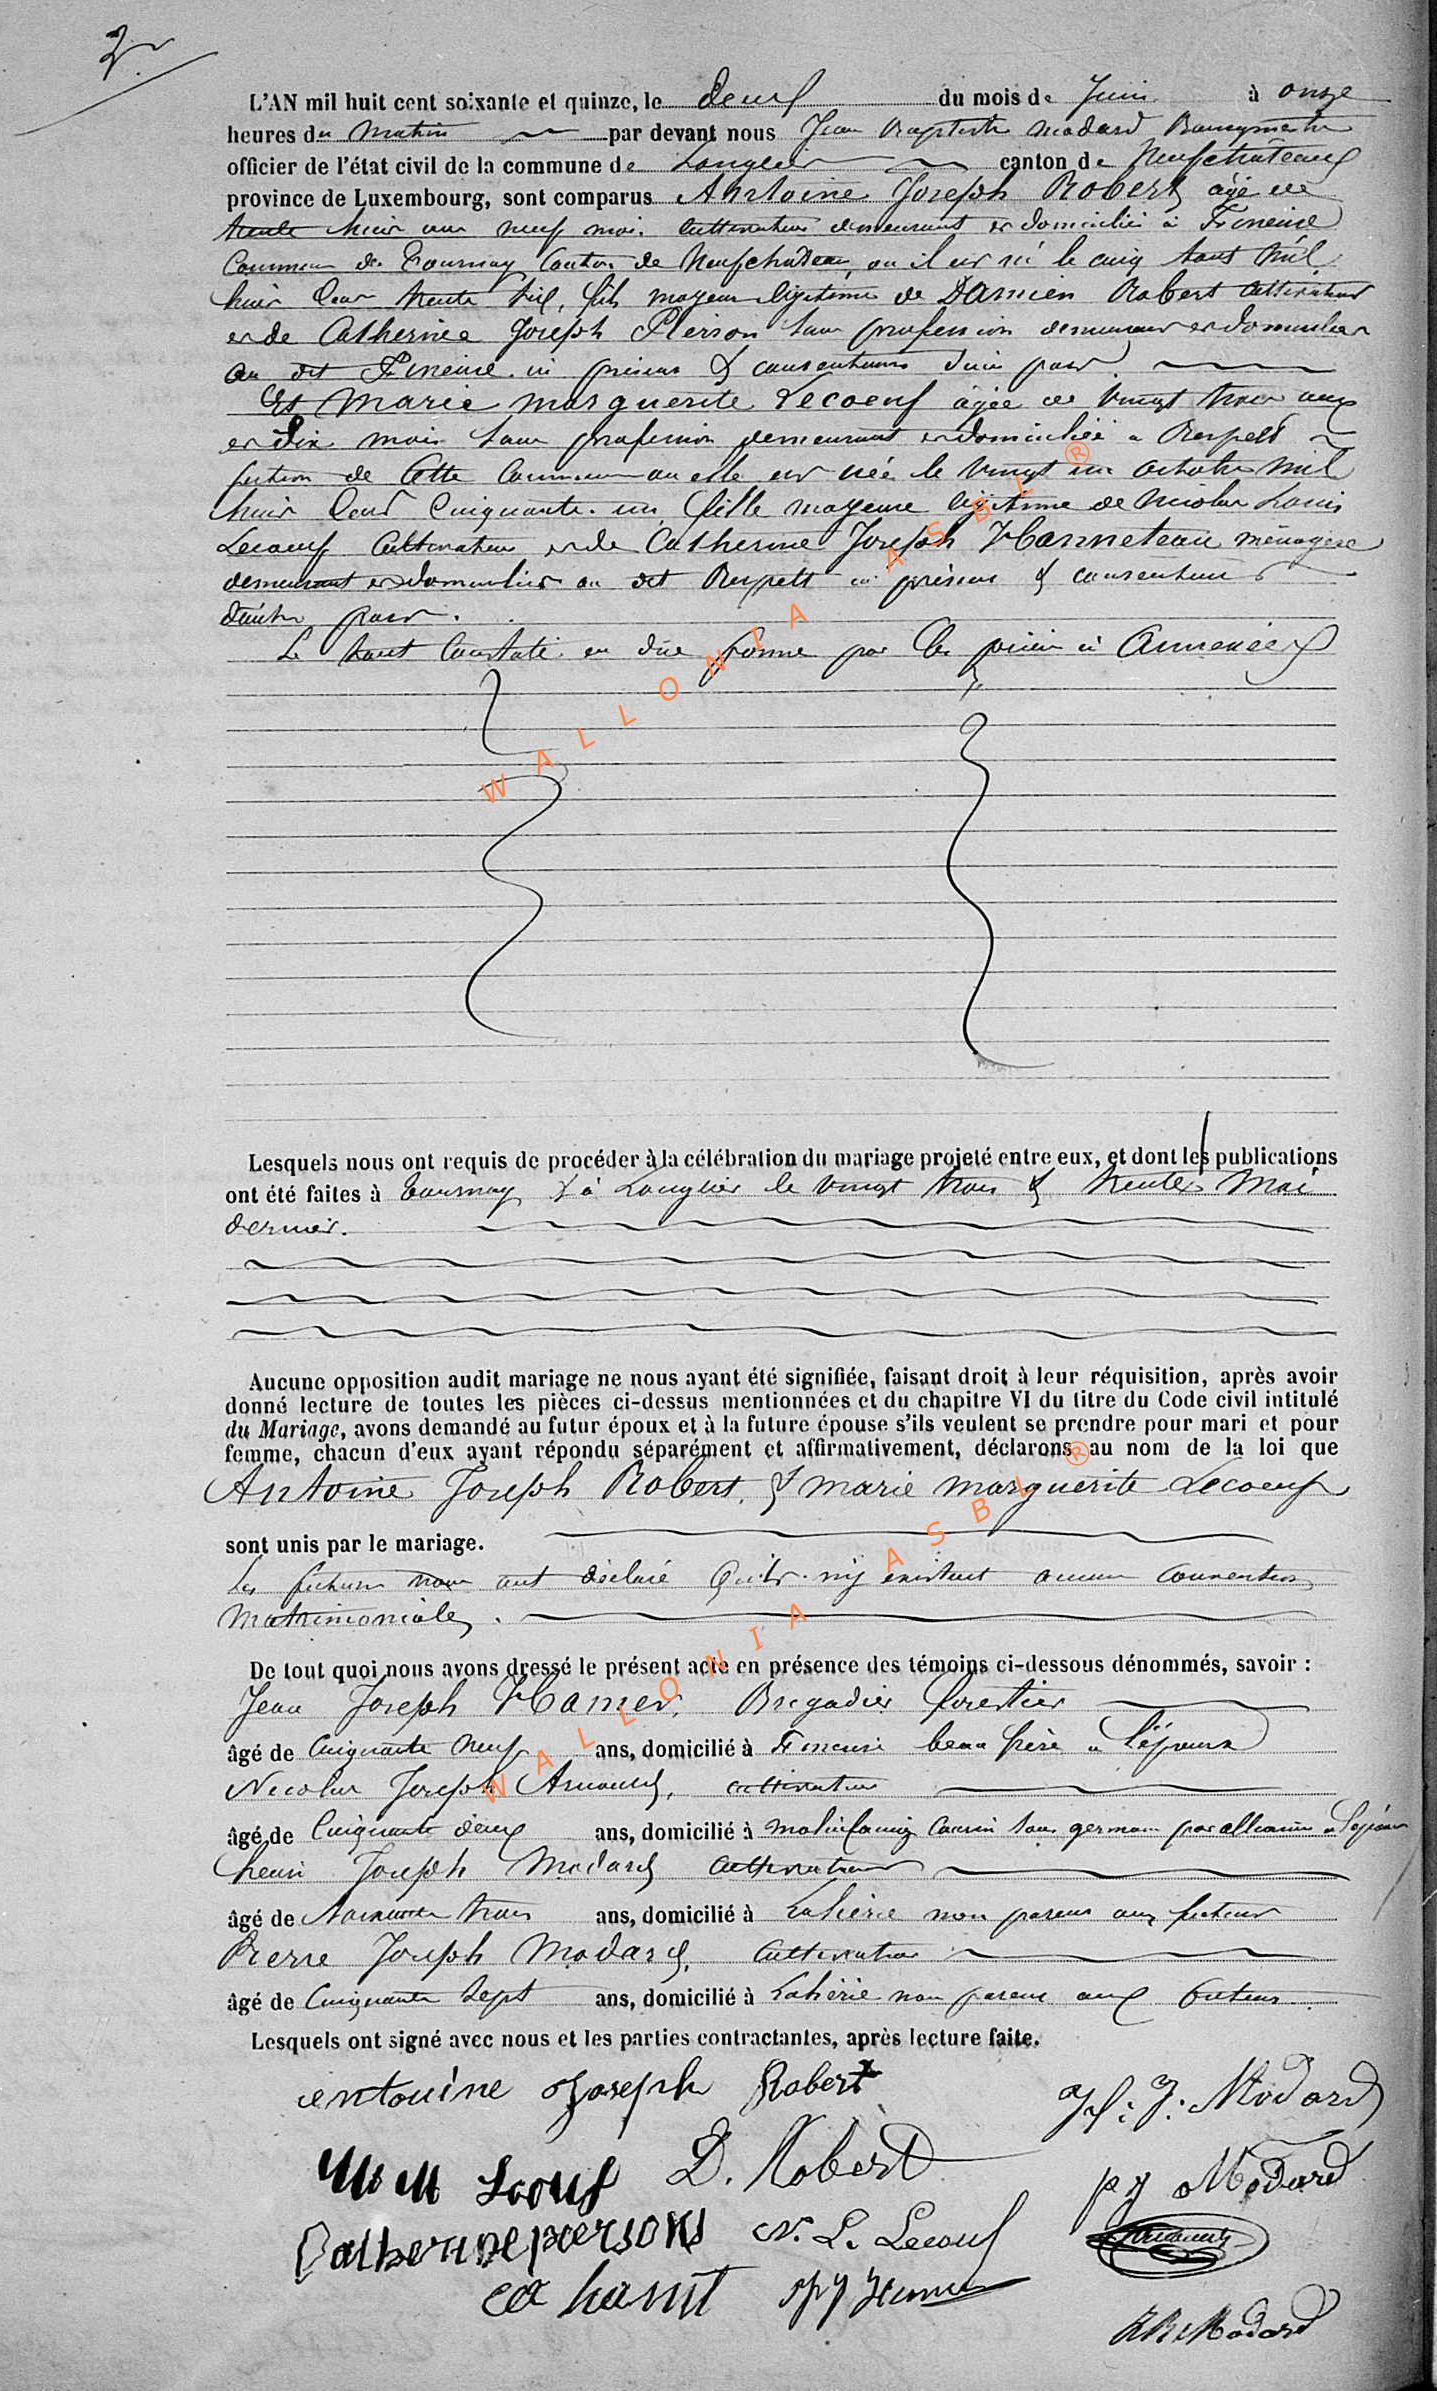 2
L'AN mil huit cent soixante et quinze, le deux du mois de Juin à onze
heures du matin par devant nous Jean Baptiste Modard Bourgmestre
officier de l'état civil de la commune de Longlier canton de Neufchâteau
province de Luxembourg, sont comparus Antoine Joseph Robert âgé de
trente huit ans neuf mois cultivateur demeurant et domicilié à Fineuse
Commune de Tournay Canton de Neufchâteau, ou il est né le cinq août mil
huit cent trente six, fils majeur légitime de Damien Robert cultivateur
et de Catherine Joseph Pierson sans profession demeurant et domiciliés
au dit Fineuse ici présens & consentans d'une part.
Et Marie Marguerite Lecoeuf âgée de vingt trois ans
et dix mois sans profession demeurant et domiciliée à Respelt
section de cette commune ou elle est née le vingt un octobre mil
huit cent cinquante un, fille majeure légitime de Nicolas Louis
Lecoeuf cultivateur et de Catherine Joseph Hanneteau ménagère
demeurant et domiciliés au dit Respelt ici présens & consentans
d'autre part.
Le tout constaté en dûe forme par les pièces ci annexées
Lesquels nous ont requis de procéder à la célébration du mariage projeté entre eux, et dont les publications
ont été faites à Tournay & à Longlier le vingt trois & trente Mai
dernier.
Aucune opposition audit mariage ne nous ayant été signifiée, faisant droit à leur réquisition, après avoir
donné lecture de toutes les pièces ci-dessus mentionnées et du chapitre VI du titre du Code civil intitulé
du Mariage, avons demandé au futur époux et à la future épouse s'ils veulent se prendre pour mari et pour
femme, chacun d'eux ayant répondu séparément et affirmativement, déclarons au nom de la loi que
Antoine Joseph Robert & Marie Marguerite Lecoeuf
sont unis par le mariage.
Les futurs nous ont déclaré qu'ils n'y existent aucune convention
matrimoniale.
De tout quoi nous avons dressé le présent acte en présence des témoins ci-dessous dénommés, savoir :
Jean Joseph Brigadier forestier
âgé de cinquante neuf ans, domicilié à beau frère à l'époux
Nicolas Joseph cultivateur
âgé de cinquante deux ans, domicilié à Molinfaing cousin sous germain par alliance à l'époux
henri Joseph Modard cultivateur
âgé de trois ans, domicilié à Lahérie non parent aux futurs
Pierre Joseph Modard, cultivateur
âgé de cinquante sept ans, domicilié à Lahérie non parent aux futurs.
Lesquels ont signé avec nous et les parties contractantes, après lecture faite.
antouine Joseph Robert
H. J. Modard
M M Lcouf D. Robert
p J Modard
Catherine piersons N. L. Lecouf
J B Modard
WALLONIA ASBL ®
WALLONIA ASBL ®